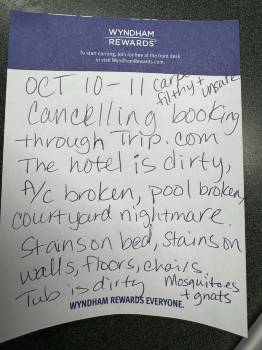 WYNDHAM
REWARDS
To start earning, join for free at the front desk
or visit WyndhamRewards.com.
OCT 10-11 carpet
filthy + unsafe
Cancelling booking
through Trip.com
The hotel is dirty,
A/c broken, pool broken,
courtyard nightmare.
Stains on bed, stains on
walls, floors, chairs.
Tub is dirty Mosquitoes
+ gnats
WYNDHAM REWARDS EVERYONE.